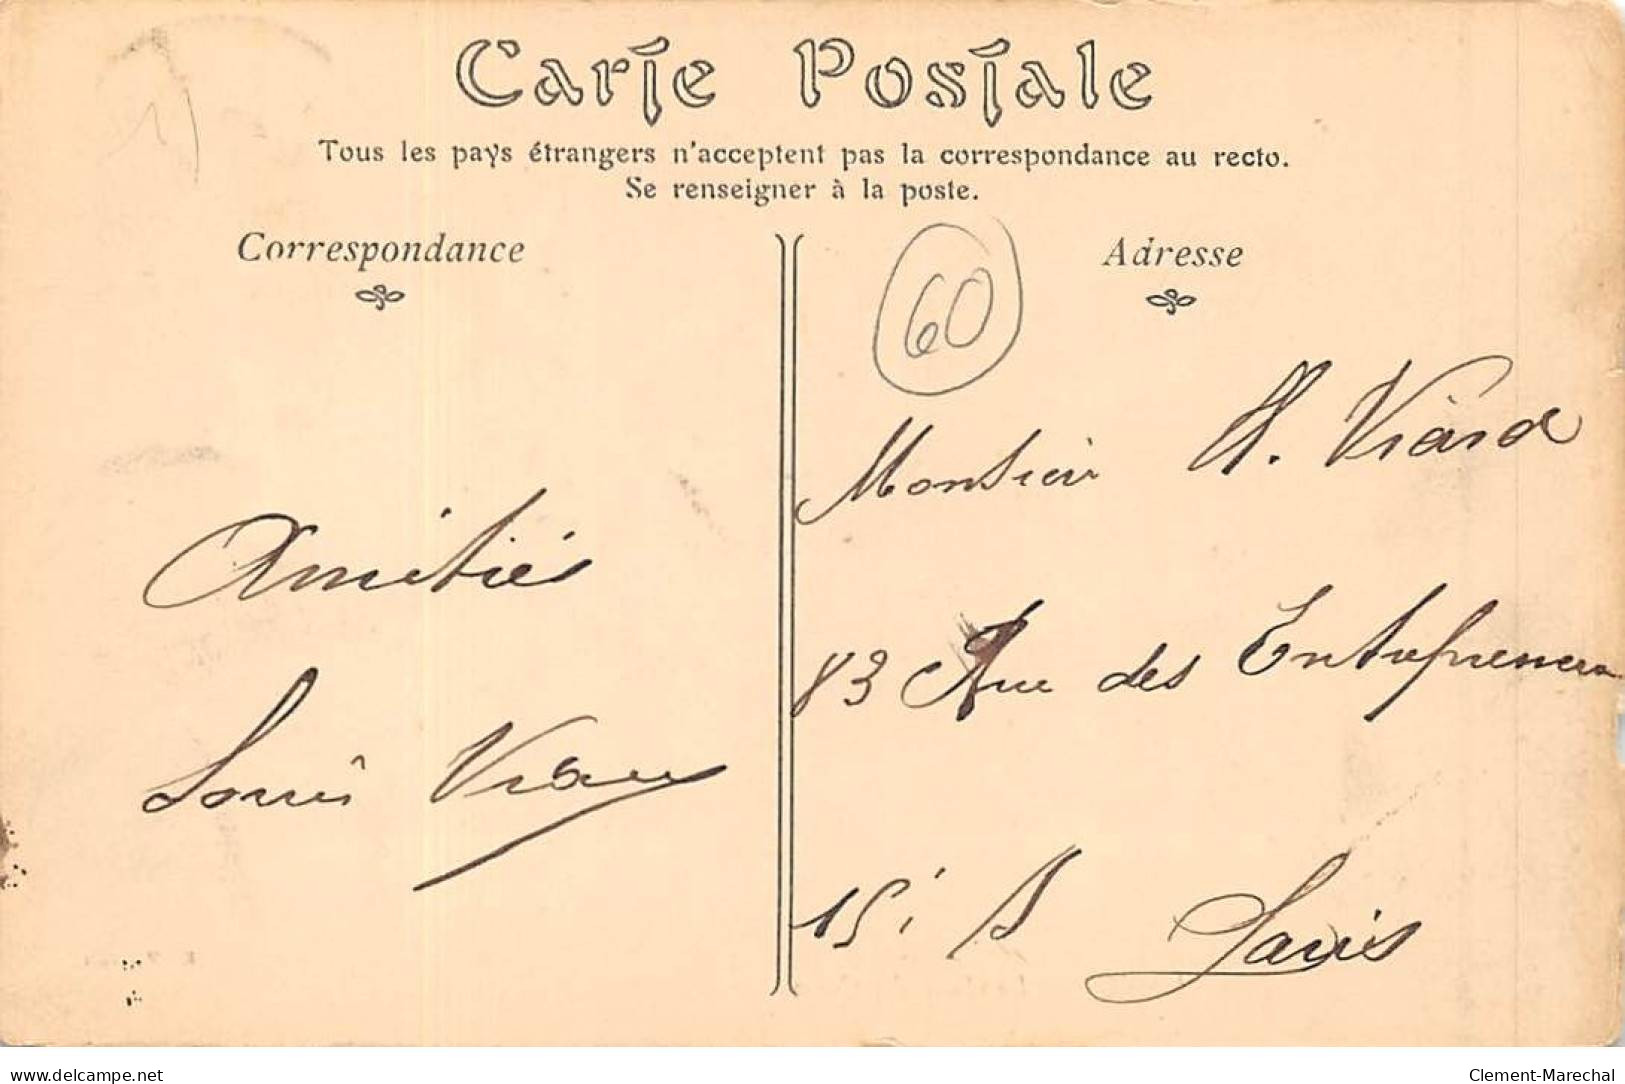 Carte Postale
Tous les pays étrangers n'acceptent pas la correspondance au recto.
Se renseigner à la poste.
Correspondance
Adresse
60
Amitiés
Louis
Monsieur
Viard
83 Rue des Entrepreneurs
15
Paris
delcampe.net
Clement-Marechal